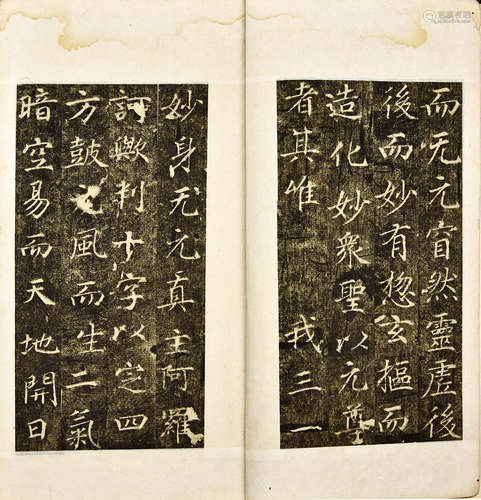 而无元窅然靈虛後
後而妙有惣玄摳而
造化妙衆聖以元尊
者其唯 我三一
妙身无元真主阿羅
訶歟判十字以定四
方鼓元風而生二氣
暗空易而天地開日